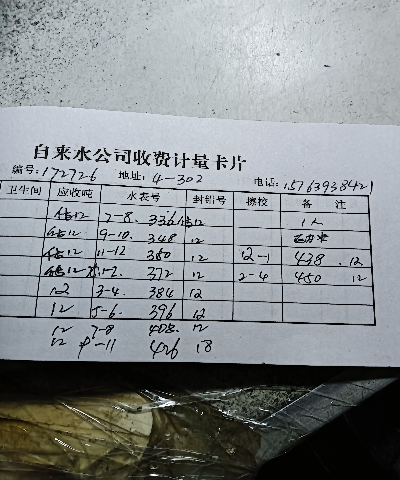 自来水公司收费计量卡片
编号:172726 地址:4-302 电话:15763938421
卫生间 应收吨 水表号 封铅号 擦校 备 注
估12 7-8. 336 估12 1人
估12 9-10. 348 12
估12 11-12 360 12 12-1 438. 12
估12 1-2. 372 12 2-4 450 12
12 3-4. 384 12
12 5-6. 396 12
12 7-8 408. 12
12 9-11 426 18